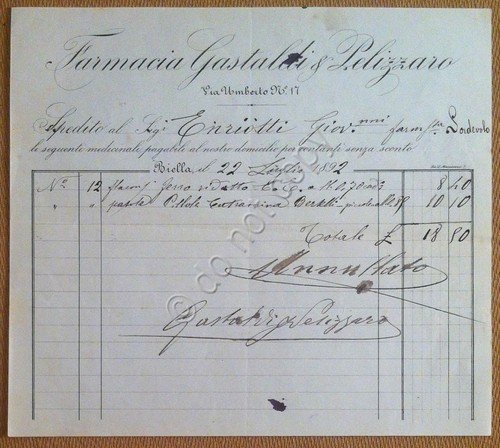 Farmacia Gastaldi & Pelizzaro
Via Umberto N.° 17
Spedito al Sig. Enriotti Giov.nni farm.sta Sordevolo
le seguente medicinale, pagabile al nostro domicilio per contanti senza sconti
Biella, il 22 Luglio 1892
N.° 12 flaconi ferro ridotto a 0,70 8 40
" " Pillole Catramina Bertelli 10 10
Totale £ 18 50
Annullato
Gastaldi & Pelizzaro